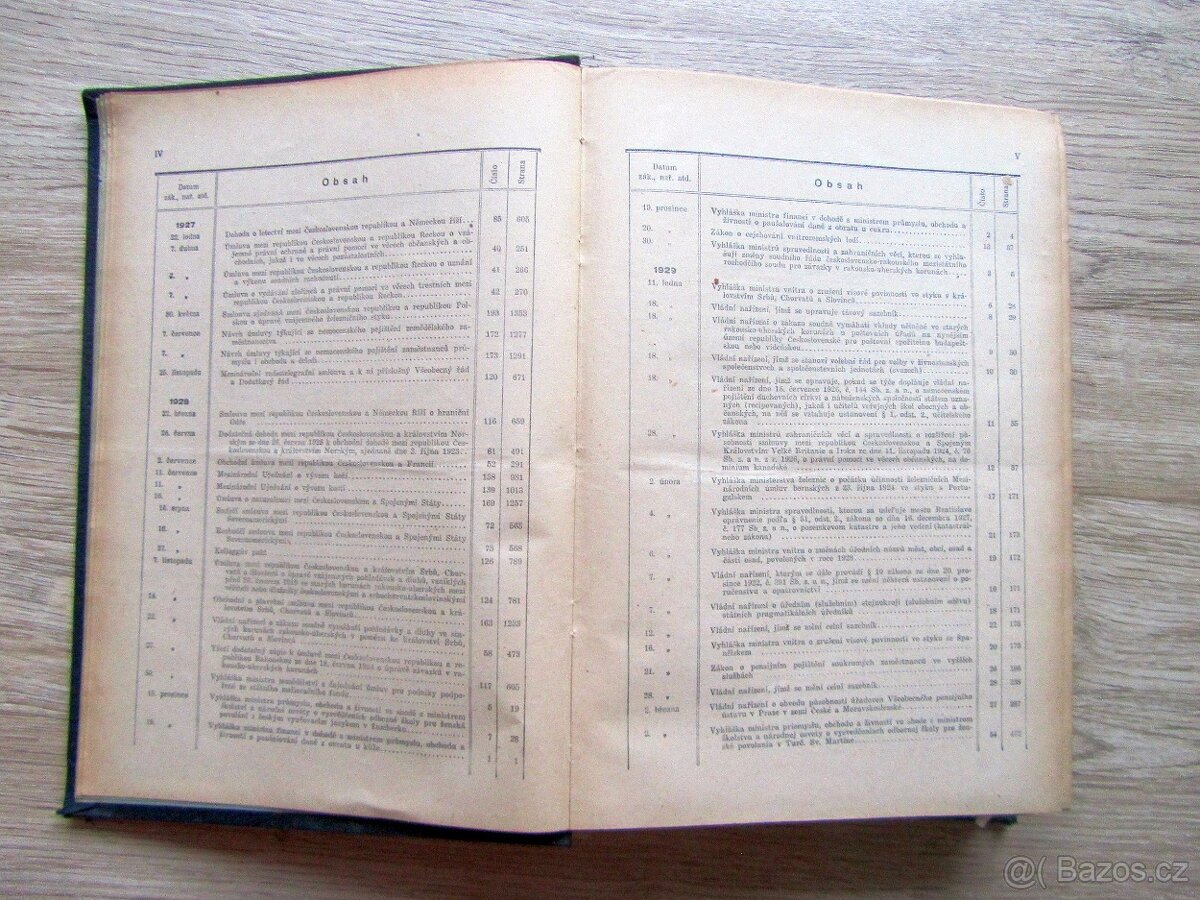 IV
Datum
zák., nař. atd.
Obsah
Číslo
Strana
1927
22. ledna Dohoda o letectví mezi Československou republikou a Německou Říší 85 605
7. dubna Úmluva mezi republikou Československou a republikou Řeckou o vzá-
jemné právní ochraně a právní pomoci ve věcech občanských a ob-
chodních, jakož i ve věcech 40 251
Úmluva mezi republikou Československou a republikou Řeckou o uznání
a výkonu soudních rozhodnutí 41 266
7. „ Úmluva o vydávání zločinců a právní pomoci ve věcech trestních mezi
republikou Československou a republikou Řeckou 42 270
30. května Smlouva sjednaná mezi republikou Československou a republikou Pol-
skou o úpravě vzájemného leteckého styku 193 1353
7. července Návrh úmluvy týkající se nemocenského pojištění zemědělského za-
městnanectva 172 1277
7. „ Návrh úmluvy týkající se nemocenského pojištění zaměstnanců prů-
myslu i obchodu a čeledi 173 1291
25. listopadu Mezinárodní radiotelegrafní smlouva a k ní příslušný Všeobecný řád
a Dodatkový řád 120 671
1928
22. března Smlouva mezi republikou Československou a Německou Říší o hraniční
Odře 116 659
26. června Dodatečná dohoda mezi republikou Československou a královstvím Nor-
ským ze dne 26. června 1928 k obchodní dohodě mezi republikou Čes-
koslovenskou a královstvím Norským, sjednané dne 2. října 1923 61 491
2. července Obchodní úmluva mezi republikou Československou a Francií 52 291
11. července Mezinárodní Ujednání o vývozu kostí 138 981
11. „ Mezinárodní Ujednání o vývozu koží 139 1013
16. „ Úmluva o naturalisaci mezi Československem a Spojenými Státy 169 1257
16. srpna Smírčí smlouva mezi republikou Československou a Spojenými Státy
Severoamerickými 72 565
16. „ Rozhodčí smlouva mezi republikou Československou a Spojenými Státy
Severoamerickými 73 568
27. „ Kelloggův pakt 126 789
7. listopadu Úmluva mezi republikou Československou a královstvím Srbů, Chor-
vatů a Slovinců o úpravě vzájemných pohledávek a dluhů, vzniklých
před 26. únorem 1919 ve starých korunách rakousko-uherských mezi
věřiteli nebo dlužníky československými a srbochorvatskoslovinskými 124 781
14. „ Obchodní a plavební smlouva mezi republikou Československou a krá-
lovstvím Srbů, Chorvatů a Slovinců 163 1233
Vládní nařízení o zákazu soudně vymáhati pohledávky a dluhy ve sta-
rých korunách rakousko-uherských v poměru ke království Srbů,
Chorvatů a Slovinců 58 473
Třetí dodatečný zápis k úmluvě mezi republikou Československou a re-
publikou Rakouskou ze dne 18. června 1924 o úpravě závazků v ra-
kousko-uherských korunách 117 665
Vyhláška ministra zemědělství o sjednání úmluv pro podniky podpo-
řené ze státního melioračního fondu 5 19
15. prosince Vyhláška ministra průmyslu, obchodu a živností ve shodě s ministrem
školství a národní osvěty o vysvědčeních odborné školy pro ženská
povolání s českým vyučovacím jazykem v Šumberku 7 28
19. „ Vyhláška ministra financí v dohodě s ministrem průmyslu, obchodu a
živností o paušalování daně z obratu u kůže 1 1
V
Datum
zák., nař. atd.
Obsah
Číslo
Strana
19. prosince Vyhláška ministra financí v dohodě s ministrem průmyslu, obchodu a
živností o paušalování daně z obratu u cukru 2 4
20. „ Zákon o cejchování vnitrozemských lodí 13 37
30. „ Vyhláška ministrů spravedlnosti a zahraničních věcí, kterou se vyhla-
šují změny soudního řádu československo-rakouského smíšeného
rozhodčího soudu pro závazky v rakousko-uherských korunách 3 6
1929
11. ledna Vyhláška ministra vnitra o zrušení visové povinnosti ve styku s krá-
lovstvím Srbů, Chorvatů a Slovinců 6 28
18. „ Vládní nařízení, jímž se upravuje tárový sazebník 8 29
18. „ Vládní nařízení o zákazu soudně vymáhati vklady učiněné ve starých
rakousko-uherských korunách u poštovních úřadů na nynějším
území republiky Československé pro poštovní spořitelnu budapešt-
skou nebo vídeňskou 9 30
18. „ Vládní nařízení, jímž se stanoví volební řád pro volby v živnostenských
společenstvech a společenstevních jednotách (svazech) 10 30
18. „ Vládní nařízení, jímž se upravuje, pokud se týče doplňuje vládní
nařízení ze dne 15. července 1926, č. 144 Sb. z. a n., o nemocenském
pojištění duchovních církví a náboženských společností státem uzna-
ných (recipovaných), jakož i učitelů veřejných škol obecných a ob-
čanských, na něž se vztahuje ustanovení § 1, odst. 2, učitelského
zákona 11 35
28. „ Vyhláška ministrů zahraničních věcí a spravedlnosti o rozšíření pů-
sobnosti smlouvy mezi republikou Československou a Spojeným
Královstvím Velké Britanie a Irska ze dne 11. listopadu 1924, č. 70
Sb. z. a n. z r. 1926, o právní pomoci ve věcech občanských, na
dominium kanadské 12 37
2. února Vyhláška ministerstva železnic o počátku účinnosti železničních Mezi-
národních úmluv bernských z 23. října 1924 ve styku s Portu-
galskem 17 171
4. „ Vyhláška ministra spravedlnosti, kterou se udeľuje mestu Bratislave
oprávnenie podľa § 51, odst. 2., zákona zo dňa 16. decembra 1927,
č. 177 Sb. z. a n., o pozemkovom katastre a jeho vedení (katastrál-
neho zákona) 21 173
6. „ Vyhláška ministra vnitra o změnách úředních názvů měst, obcí, osad a
částí osad, povolených v roce 1928 19 172
7. „ Vládní nařízení, kterým se dále provádí § 10 zákona ze dne 20. pro-
since 1922, č. 391 Sb. z. a n., jímž se mění některá ustanovení o
poručenstvu a opatrovnictví 16 171
7. „ Vládní nařízení o úředním (služebním) stejnokroji (služebním oděvu)
státních pragmatikálních úředníků 18 171
12. „ Vládní nařízení, jímž se mění celní sazebník 22 175
16. „ Vyhláška ministra vnitra o zrušení visové povinnosti ve styku se Špa-
nělskem 20 173
21. „ Zákon o pensijním pojištění soukromých zaměstnanců ve vyšších
službách 26 185
28. „ Vládní nařízení, jímž se mění celní sazebník 28 238
2. března Vládní nařízení o obvodu působnosti úřadoven Všeobecného pensijního
ústavu v Praze v zemi České a Moravskoslezské 27 237
2. „ Vyhláška ministra průmyslu, obchodu a živností ve shode s ministrom
školstva a národnej osvety o vysvedčeniach odbornej školy pre žen-
ské povolania v Turč. Sv. Martine 54
@( Bazos.cz